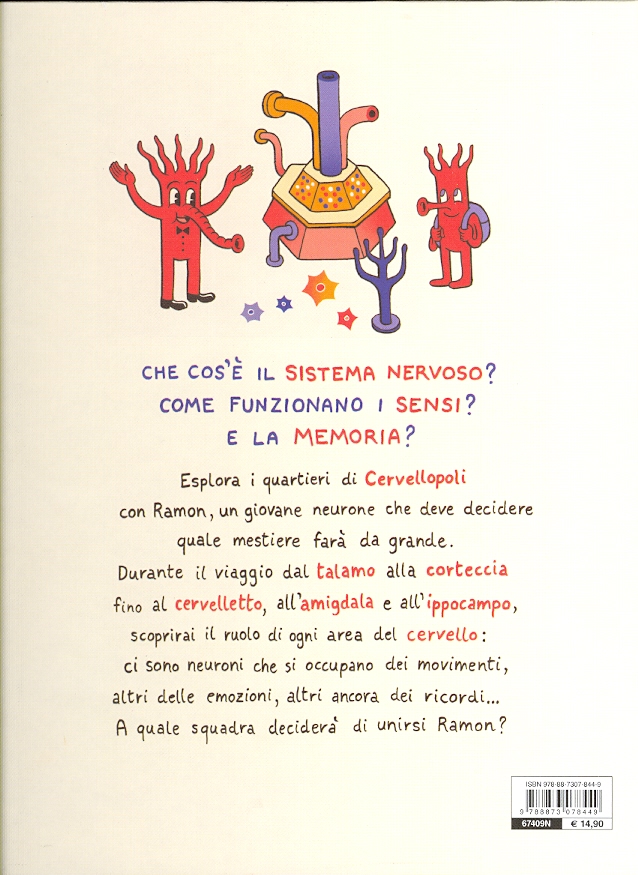 CHE COS'È IL SISTEMA NERVOSO?
COME FUNZIONANO I SENSI?
E LA MEMORIA?
Esplora i quartieri di Cervellopoli
con Ramon, un giovane neurone che deve decidere
quale mestiere farà da grande.
Durante il viaggio dal talamo alla corteccia
fino al cervelletto, all'amigdala e all'ippocampo,
scoprirai il ruolo di ogni area del cervello:
ci sono neuroni che si occupano dei movimenti,
altri delle emozioni, altri ancora dei ricordi...
A quale squadra deciderà di unirsi Ramon?
ISBN 978-88-7307-844-9
9 788873 078449
67409N € 14,90